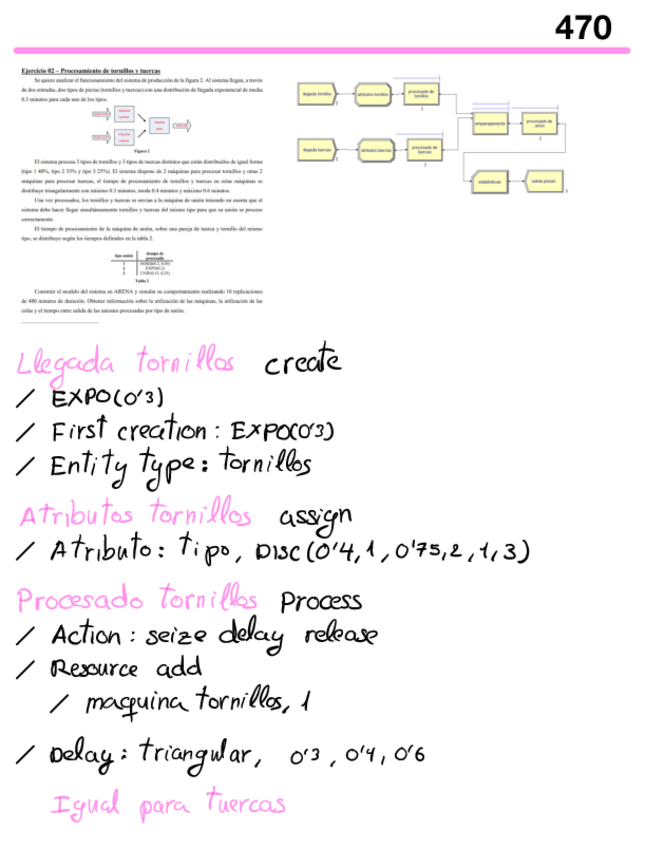 470
Ejercicio 02 – Procesamiento de tornillos y tuercas
Se quiere analizar el funcionamiento del sistema de producción de la figura 2. Al sistema llegan, a través
de dos entradas, dos tipos de piezas (tornillos y tuercas) con una distribución de llegada exponencial de media
0.3 minutos para cada uno de los tipos.
Figura 2
El sistema procesa 3 tipos de tornillos y 3 tipos de tuercas distintos que están distribuidos de igual forma
(tipo 1 40%, tipo 2 35% y tipo 3 25%). El sistema dispone de 2 máquinas para procesar tornillos y otras 2
máquinas para procesar tuercas, el tiempo de procesamiento de tornillos y tuercas en estas máquinas se
distribuye triangularmente con mínimo 0.3 minutos, moda 0.4 minutos y máximo 0.6 minutos.
Una vez procesados, los tornillos y tuercas se envían a la máquina de unión teniendo en cuenta que el
sistema debe hacer llegar simultáneamente tornillos y tuercas del mismo tipo para que su unión se procese
correctamente.
El tiempo de procesamiento de la máquina de unión, sobre una pareja de tuerca y tornillo del mismo
tipo, se distribuye según los tiempos definidos en la tabla 2.
tipo unión tiempo de procesado
1
2
3
Tabla 2
Construir el modelo del sistema en ARENA y simular su comportamiento realizando 10 replicaciones
de 480 minutos de duración. Obtener información sobre la utilización de las máquinas, la utilización de las
colas y el tiempo entre salida de las uniones procesadas por tipo de unión.
llegada tornillos
atributos tornillos
procesado de tornillos
llegada tuercas
atributos tuercas
procesado de tuercas
emparejamiento
procesado de union
estadisticas
salida piezas
Llegada tornillos create
/ EXPO(0'3)
/ First creation : EXPO(0'3)
/ Entity type : tornillos
Atributos tornillos assign
/ Atributo : tipo, DISC(0'4,1,0'75,2,1,3)
Procesado tornillos Process
/ Action : seize delay release
/ Resource add
/ maquina tornillos, 1
/ Delay : triangular, 0'3, 0'4, 0'6
Igual para tuercas